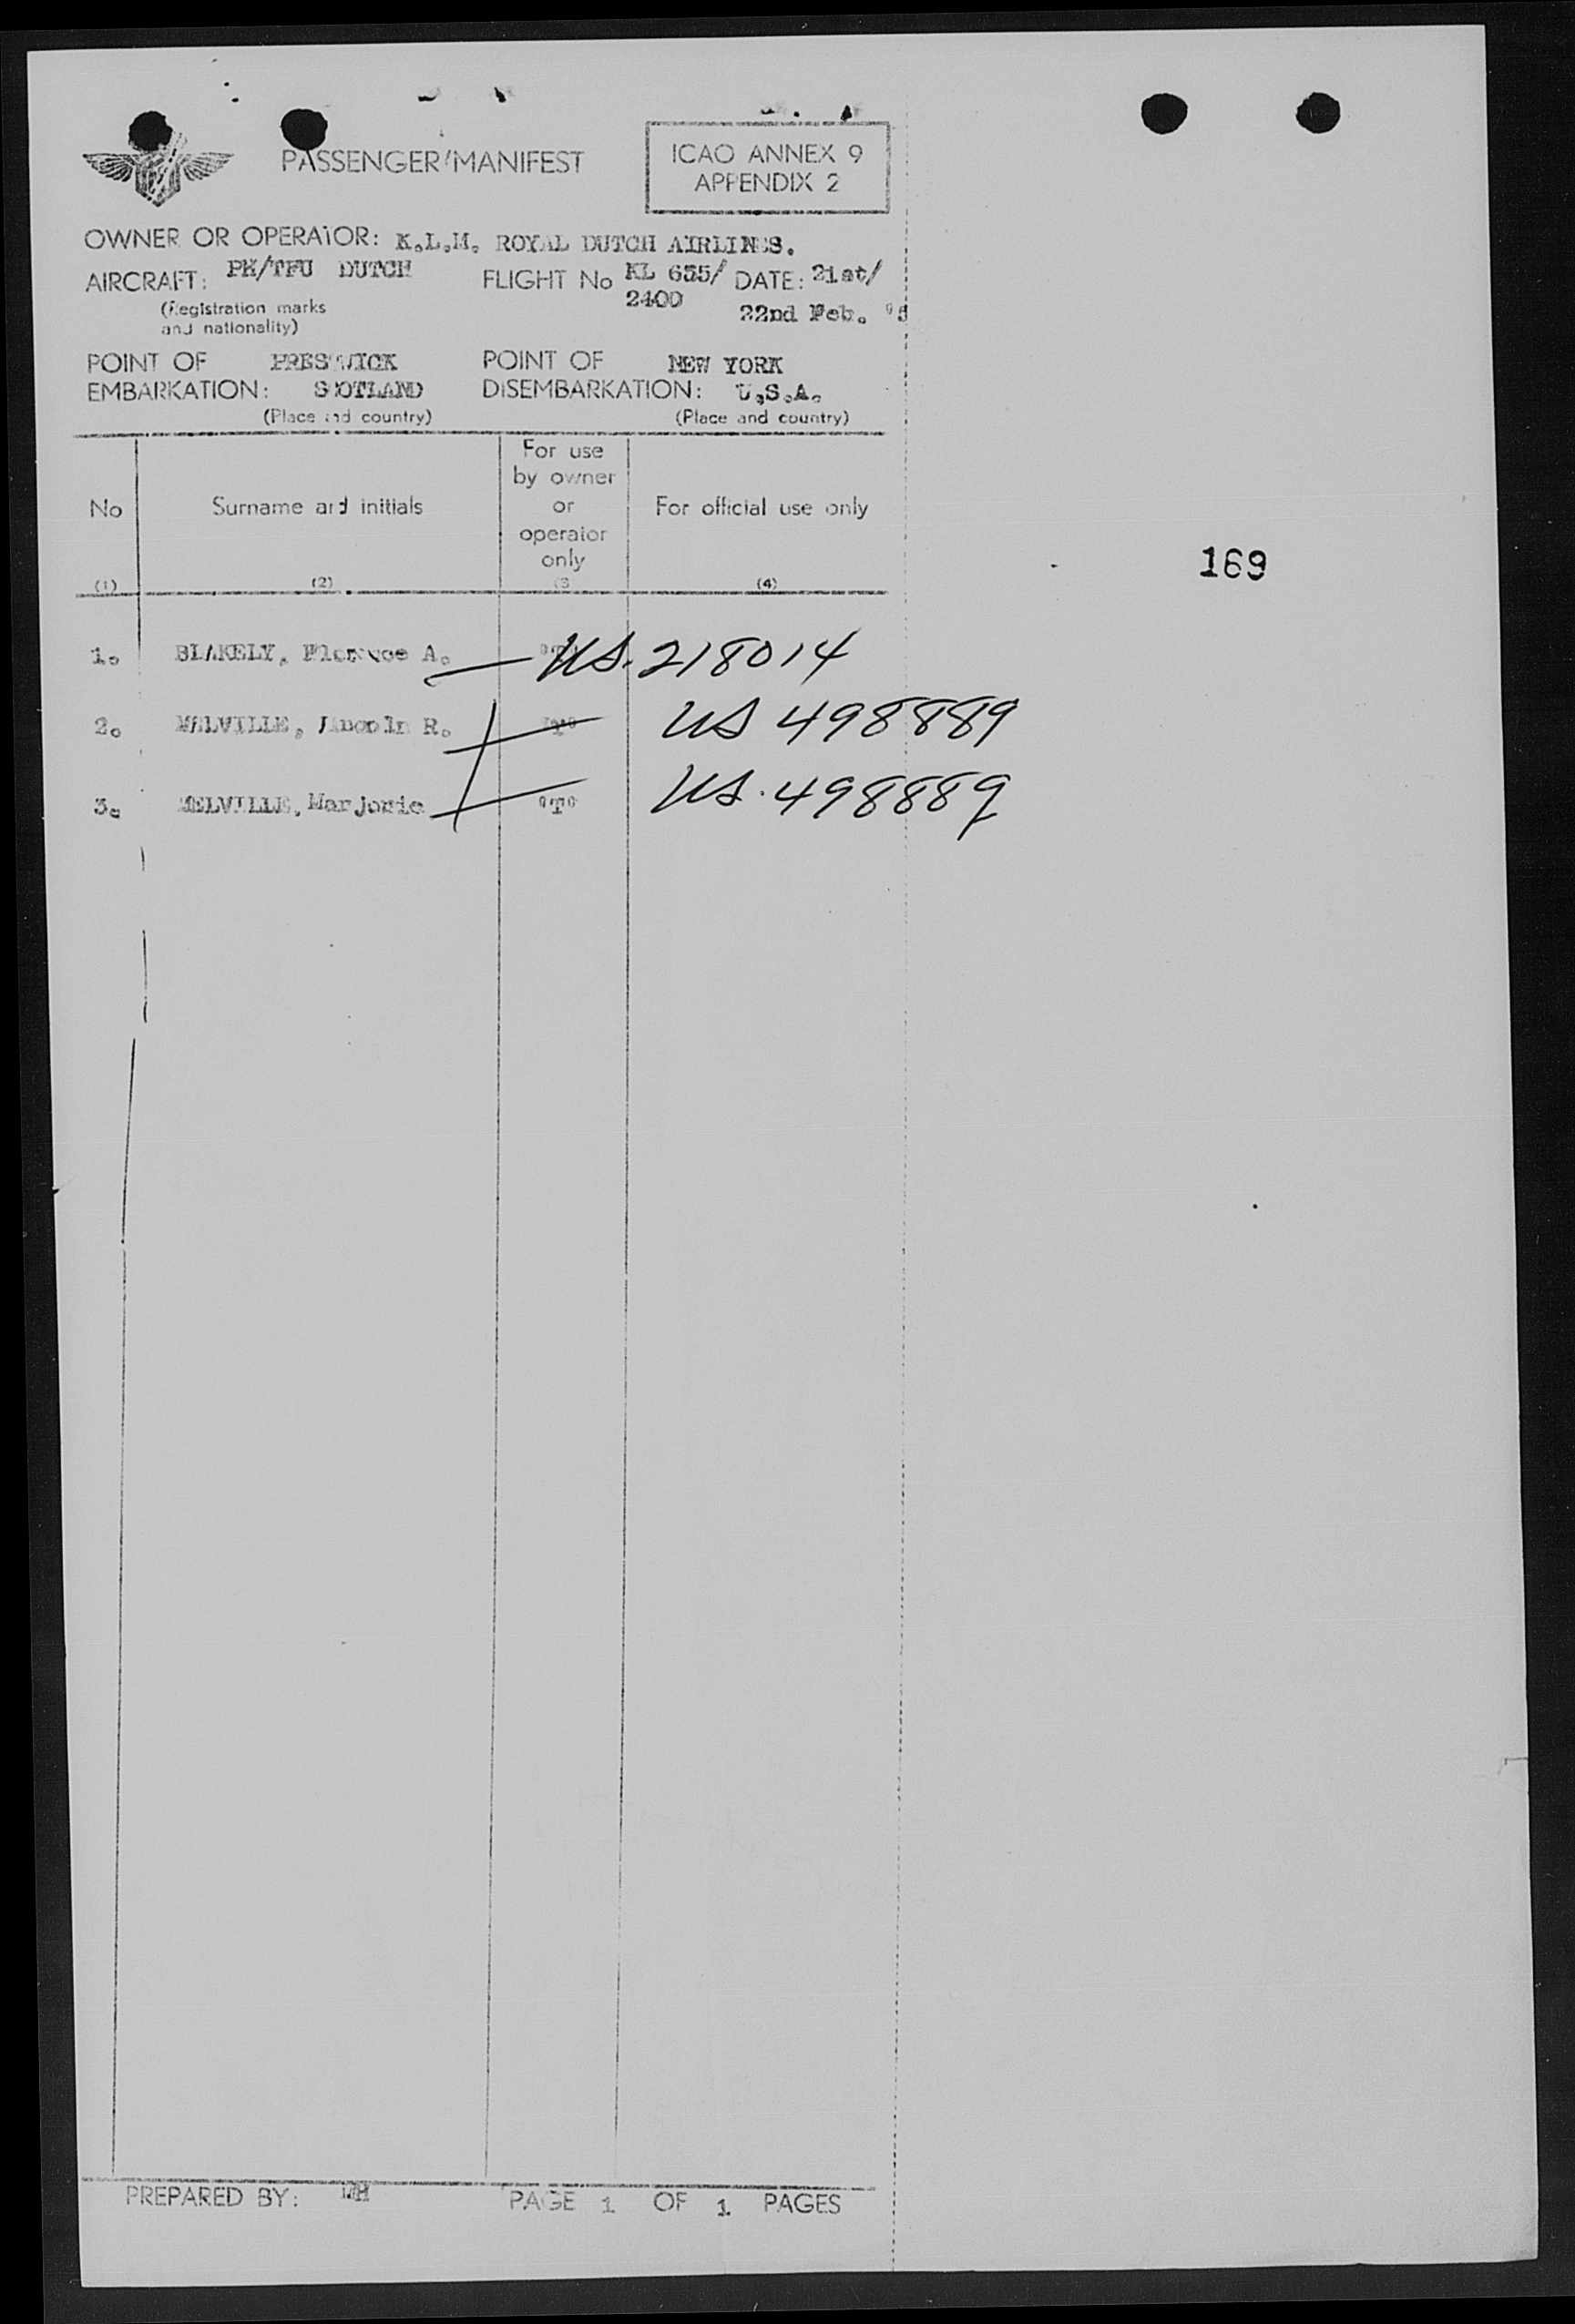 PASSENGER MANIFEST
ICAO ANNEX 9
APPENDIX 2
OWNER OR OPERATOR: K.L.M. ROYAL DUTCH AIRLINES.
AIRCRAFT: PH/TFU DUTCH FLIGHT No KL 655/ DATE: 21st/
(Registration marks and nationality) 2400 22nd Feb. '5
POINT OF PRESTWICK POINT OF NEW YORK
EMBARKATION: SCOTLAND DISEMBARKATION: U.S.A.
(Place and country) (Place and country)
No Surname and initials For use by owner or operator only For official use only
(1) (2) (3 (4)
169
1. BLAKELY, Florence A. US. 218014
2. MELVILLE, R. "T" US 498889
3. MELVILLE, Marjorie "T" US. 498889
PREPARED BY: PAGE 1 OF 1 PAGES